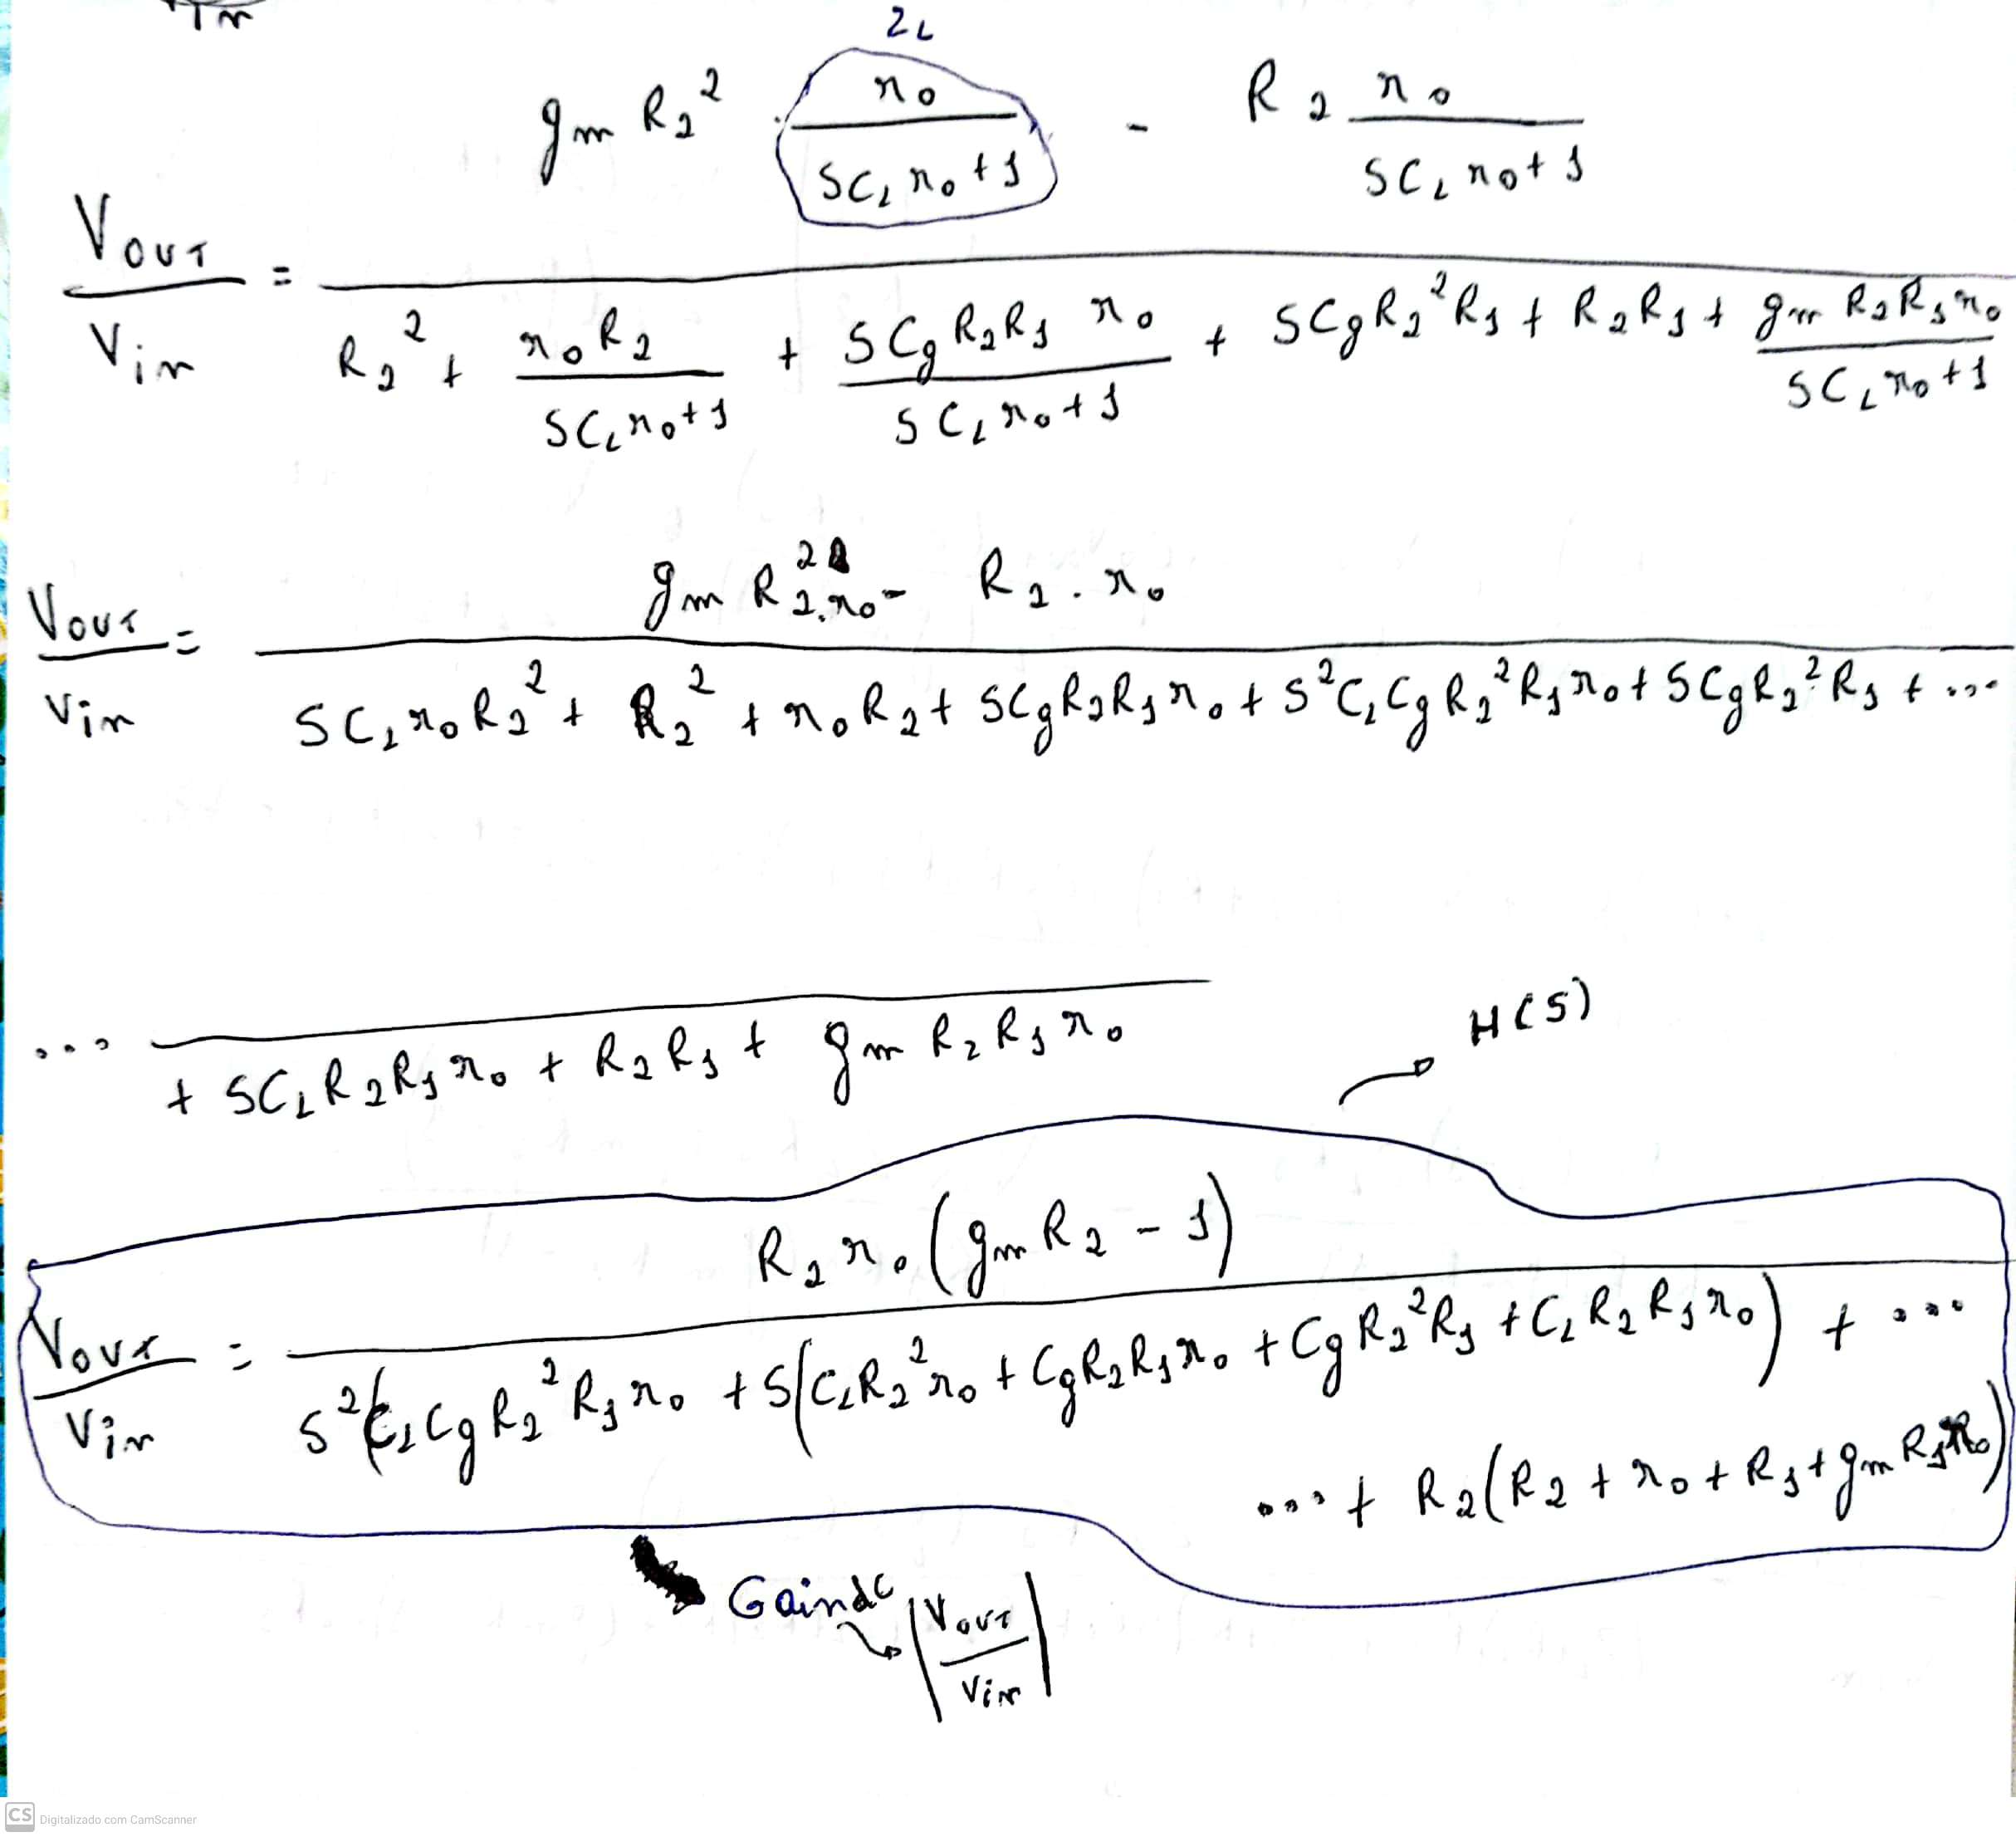 Z_L
gm R_2^2 · r_o/(SC_L r_o+1) - R_2 r_o/(SC_L r_o+1)
V_OUT/V_in = 
R_2^2 + r_o R_2/(SC_L r_o+1) + SC_g R_2 R_1 r_o/(SC_L r_o+1) + SC_g R_2^2 R_1 + R_2 R_1 + gm R_2 R_1 r_o/(SC_L r_o+1)
gm R_2^2 . r_o - R_2 . r_o
V_OUT/V_in =
SC_L r_o R_2^2 + R_2^2 + r_o R_2 + SC_g R_2 R_1 r_o + S^2 C_L C_g R_2^2 R_1 r_o + SC_g R_2^2 R_1 + ...
... + SC_L R_2 R_1 r_o + R_2 R_1 + gm R_2 R_1 r_o
H(S)
R_2 r_o (gm R_2 - 1)
V_OUT/V_in =
S^2 C_L C_g R_2^2 R_1 r_o + S(C_L R_2^2 r_o + C_g R_2 R_1 r_o + C_g R_2^2 R_1 + C_L R_2 R_1 r_o) + ...
... + R_2(R_2 + r_o + R_1 + gm R_1 r_o)
Gaindc
|V_OUT/V_in|
CS Digitalizado com CamScanner